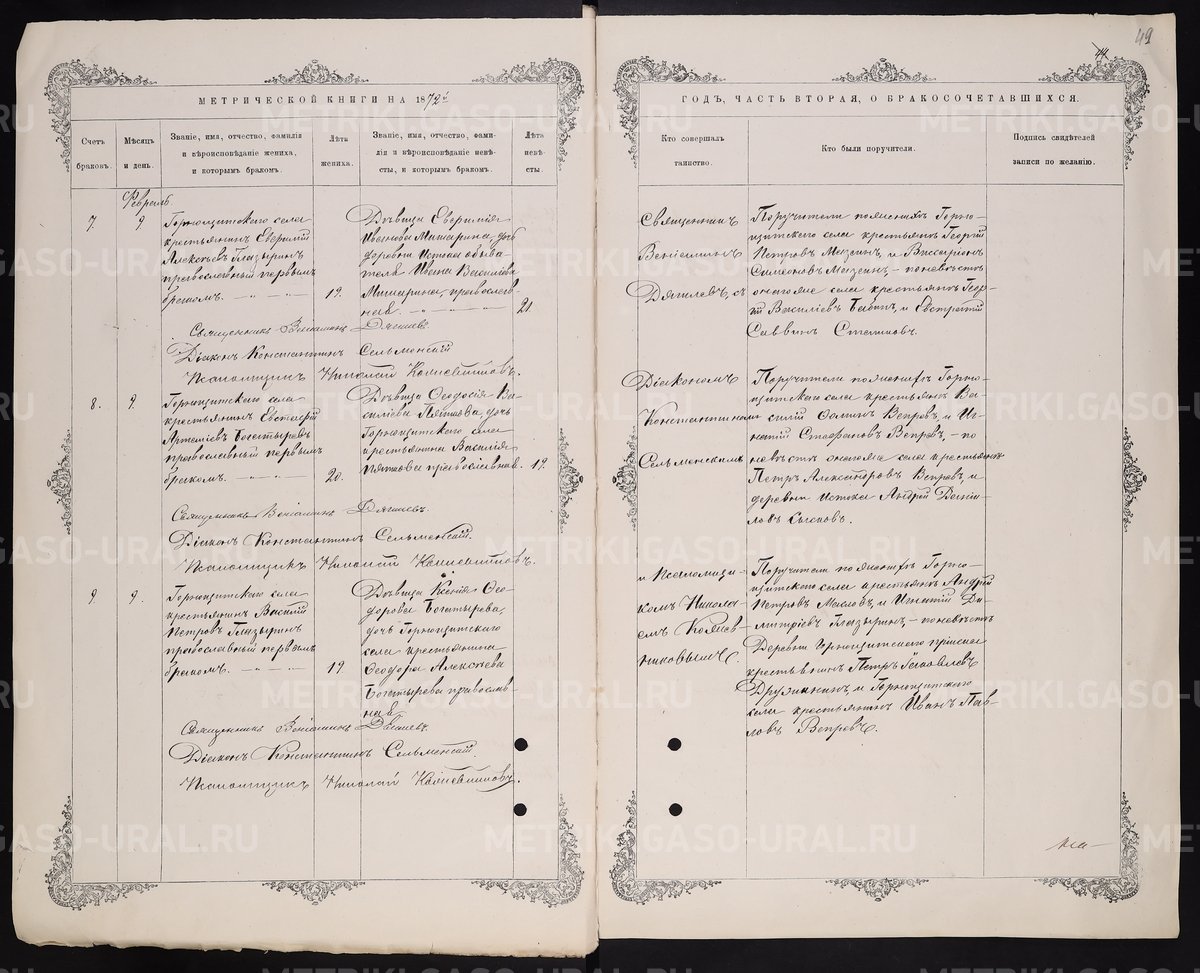 49
МЕТРИЧЕСКОЙ КНИГИ НА 1872й
Счетъ браковъ.
Мѣсяцъ и день.
Званіе, имя, отчество, фамилія
и вѣроисповѣданіе жениха,
и которымъ бракомъ.
Лѣта
жениха.
Званіе, имя, отчество, фами-
лія и вѣроисповѣданіе невѣ-
сты, и которымъ бракомъ.
Лѣта
невѣ-
сты.
Февраль
7.
9.
Горнощитскаго села
крестьянинъ Евѳимій
Алексѣевъ Глазыринъ
православный первымъ
бракомъ.
19.
Дѣвица Евѳимія
Иванова Мишарина, дочь
деревни Истока обыва-
теля Ивана Васильева
Мишарина, православ-
ная.
21.
Священникъ Веніаминъ Дягилевъ
Діаконъ Константинъ Сельменскій
Псаломщикъ Николай
8.
9.
Горнощитскаго села
крестьянинъ Евстафій
Артеміевъ Богатыревъ
православный первымъ
бракомъ.
20.
Дѣвица Ѳеодосія Ва-
силіева Пятаева, дочь
Горнощитскаго села
крестьянина Василія
Пятаева православная.
19.
Священникъ Веніаминъ Дягилевъ.
Діаконъ Константинъ Сельменскій.
Псаломщикъ Николай
9.
9.
Горнощитскаго села
крестьянинъ Василій
Петровъ Глазыринъ
православный первымъ
бракомъ.
19
Дѣвица Ксенія Ѳео-
дорова Богатырева,
дочь Горнощитскаго
села крестьянина
Ѳеодора Алексѣева
Богатырева православ-
ная
Священникъ Веніаминъ Дягилевъ.
Діаконъ Константинъ Сельменскій
Псаломщикъ Николай
ГОДЪ, ЧАСТЬ ВТОРАЯ, О БРАКОСОЧЕТАВШИХСЯ.
Кто совершалъ
таинство.
Кто были поручители.
Подпись свидѣтелей
записи по желанію.
Священникъ
Веніаминъ
Дягилевъ, съ
Діакономъ
Константиномъ
Сельменскимъ
и Псаломщи-
комъ Никола-
емъ
Поручители по женихѣ Горно-
щитскаго села крестьянъ Георгій
Петровъ и Виссаріонъ
Симеоновъ - по невѣстѣ
онаго же села крестьянъ Геор-
гій Василіевъ и Евстратій
Саввинъ
Поручители по женихѣ Горно-
щитскаго села крестьянъ Ва-
силій Вепревъ, и Иг-
натій Стефановъ Вепревъ, - по
невѣстѣ онаго же села крестьянинъ
Петръ Александровъ Вепревъ, и
деревни Истока Андрей
Поручители по женихѣ Горно-
щитскаго села крестьянъ Андрей
Петровъ Масловъ, и Игнатій Ди-
митріевъ Глазыринъ, - по невѣстѣ
Деревни Горнощитскаго пріиска
крестьянинъ Петръ Іаковлевъ
Дружининъ, и Горнощитскаго
села крестьянинъ Иванъ Пав-
ловъ Вепревъ.
METRIKI.GASO-URAL.RU